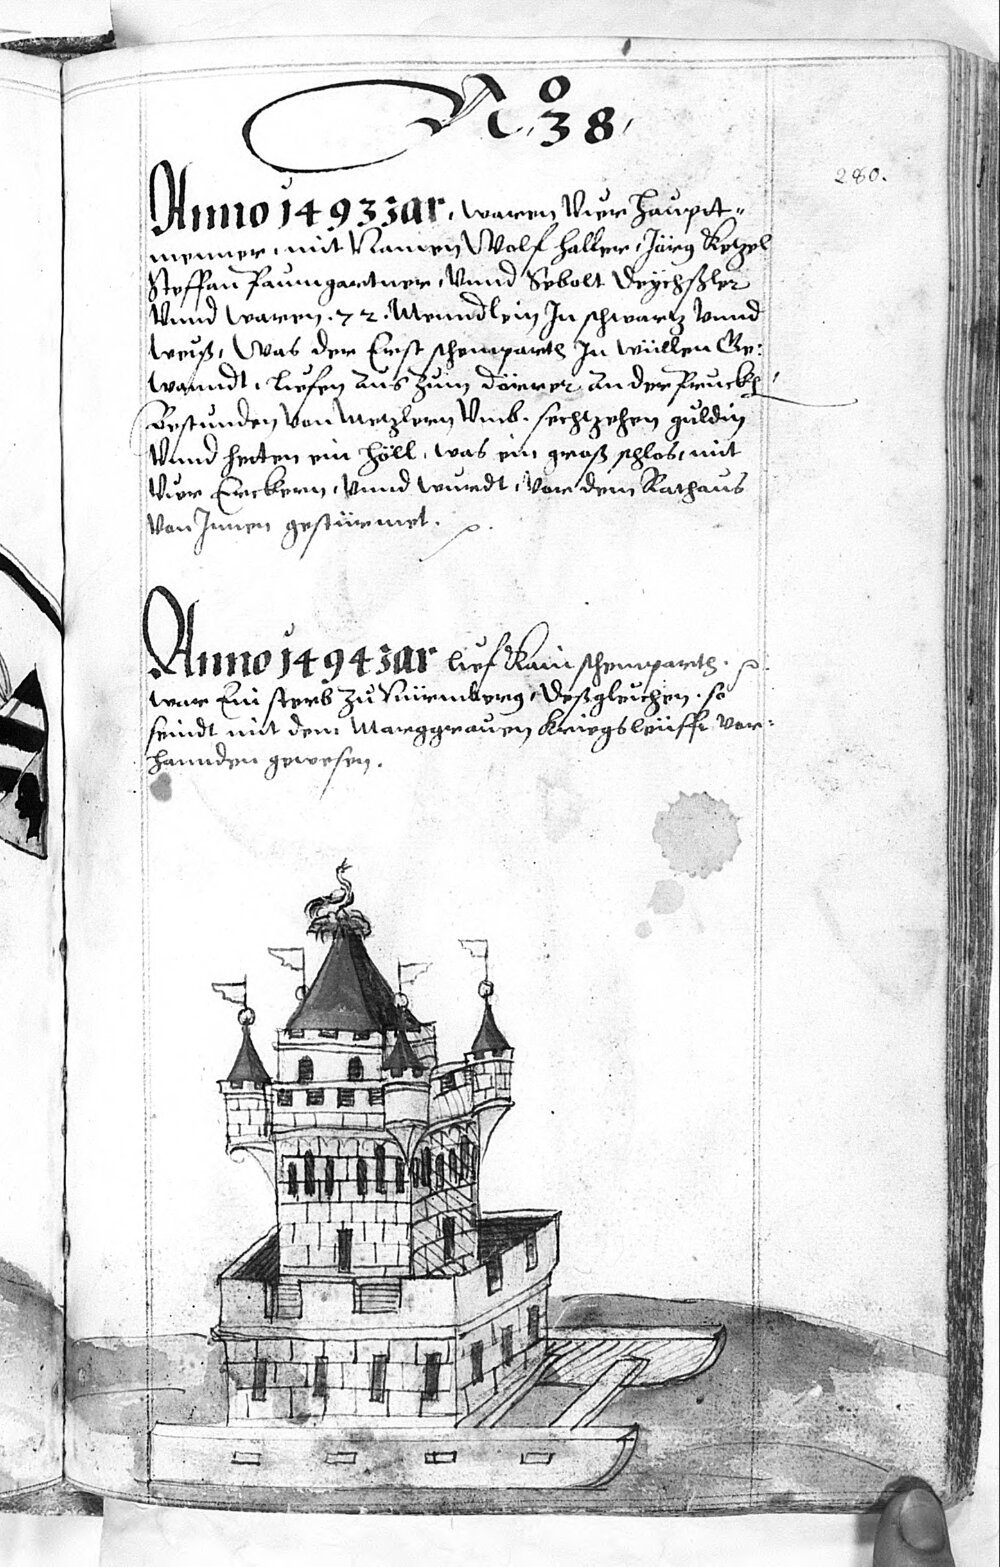 No
38
280.
Anno 1493 Jar, waren Vier Haupt=
menner, mit Namen Wolf Haller, Jörg Ketzel
Steffan Paumgartner, Vnnd Sebolt Deychßler
Vnnd waren .72. Menndlein In schwartz vnnd
weiß, Was der Erst schempartt In wüllen Ge:
wanndt, Liefen aus zum Dörrer An der Pruckh
Bestunden von Metzlern Vmb. sechtzehen guldin
Vnnd hetten ein Höll, was ein groß schlos, mit
Vier Erckern, Vnnd wurdt, vor dem Rathaus
Von Innen gestürmet.
Anno 1494 Jar lief Kain schempartt.
war Ein sterb zu Nürmberg, Deßgleichen. so
seindt mit dem Marggrauen Kriegsleüffe vor:
hannden gewesen.